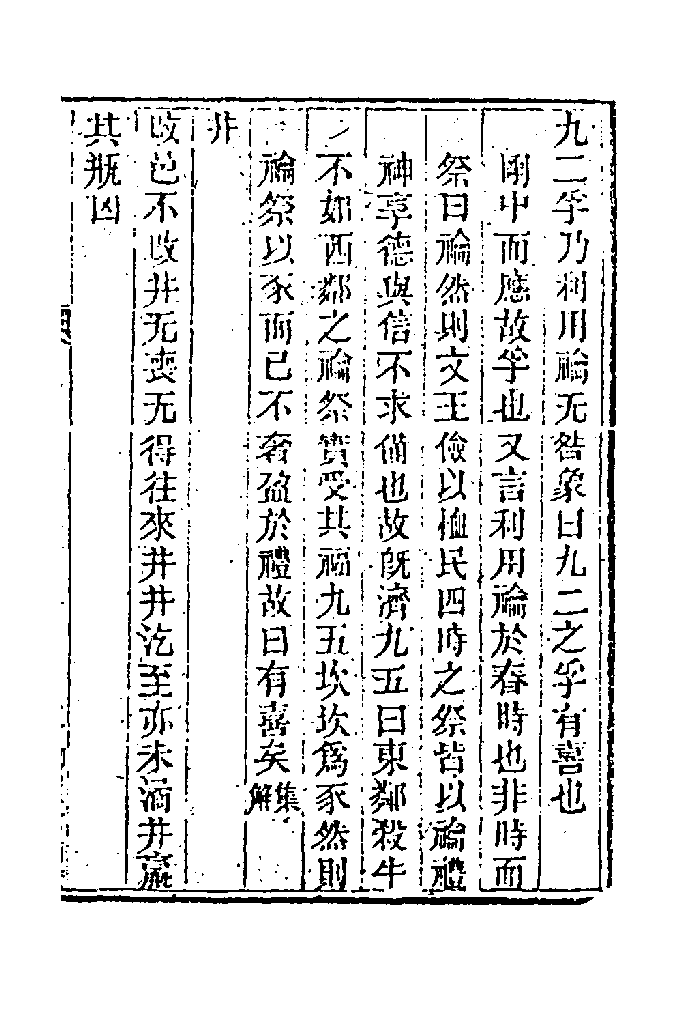 九二孚乃利用禴无咎象曰九二之孚有喜也
剛中而應故孚也又言利用禴於春時也非時而
祭曰禴然則文王儉以恤民四時之祭皆以禴禮
神享德與信不求備也故旣濟九五曰東鄰殺牛
不如西鄰之禴祭實受其福九五坎坎爲豕然則
禴祭以豕而已不奢盈於禮故曰有喜矣集解
井
改邑不改井无喪无得往來井井汔至亦未繘井羸
其瓶凶